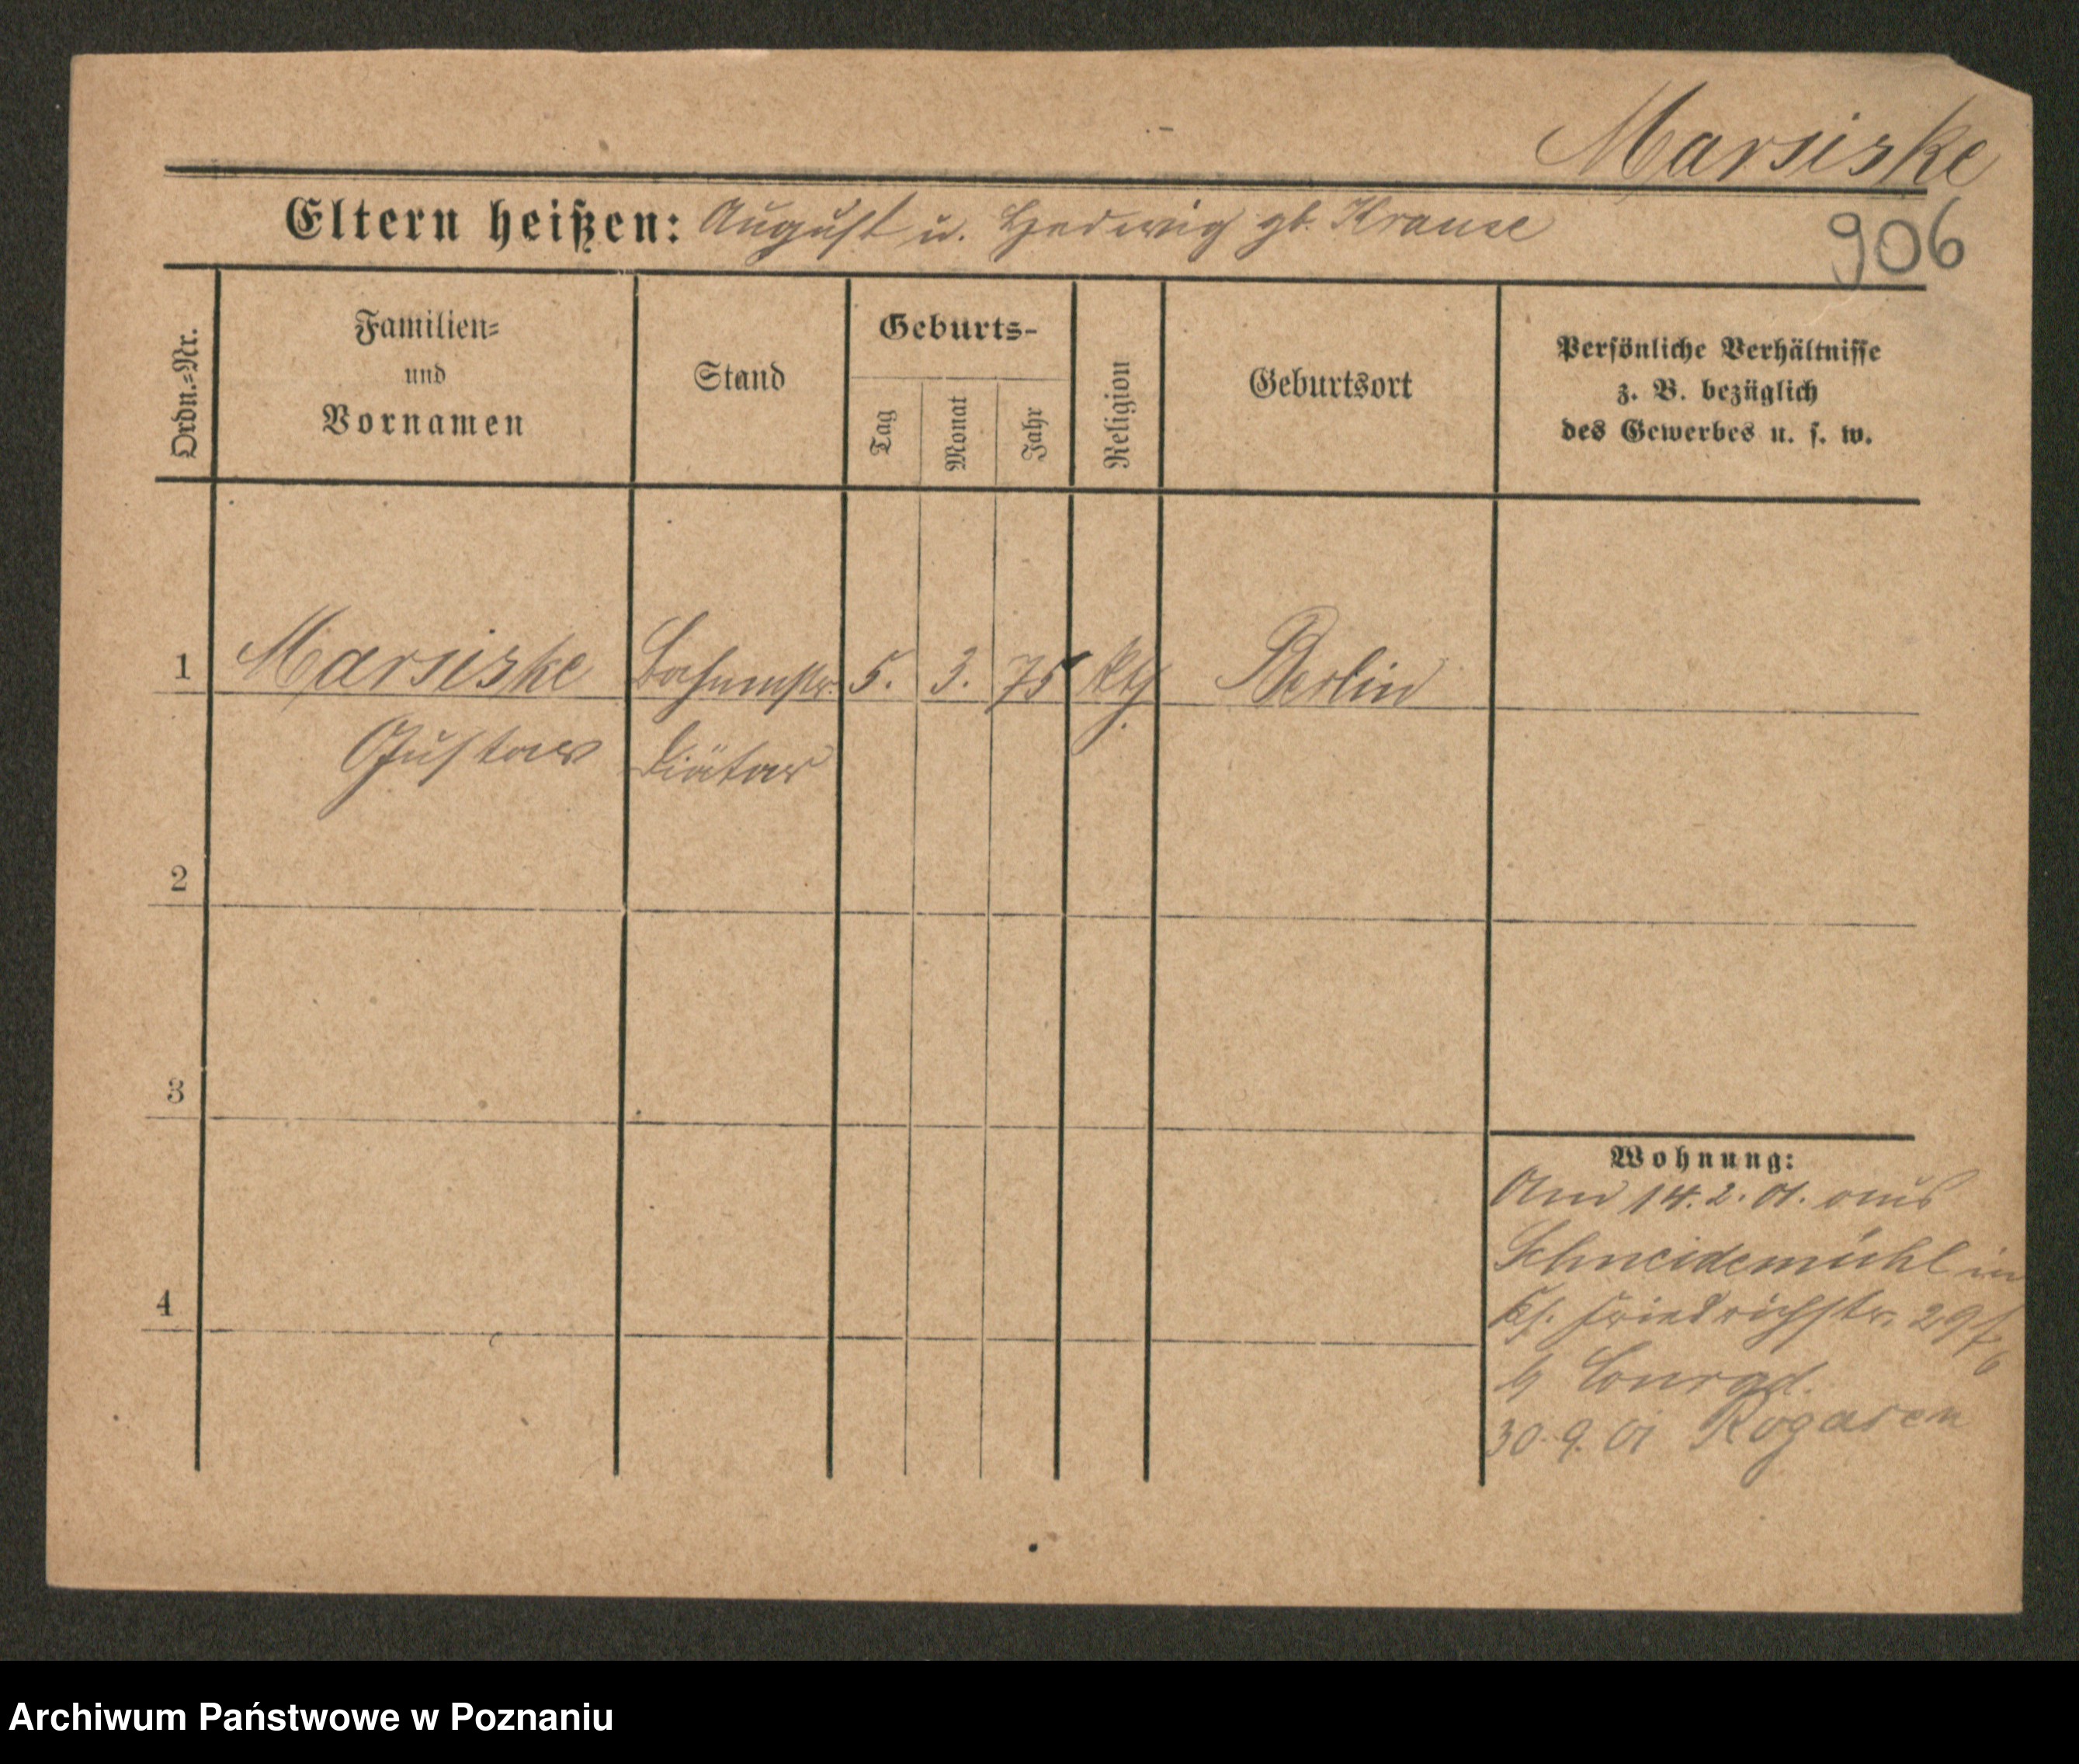 Marsiske
Eltern heißen: August u. Hedwig gb. Krause
906
Ordn.=Nr.
Familien=
und
Vornamen
Stand
Geburts-
Tag
Monat
Jahr
Religion
Geburtsort
Persönliche Verhältnisse
z. B. bezüglich
des Gewerbes u. s. w.
1 Marsiske Bahnmstr. 5. 3. 75 Berlin
Gustav Diätar
2
3
4
Wohnung:
Am 14. 2. 01. aus
Schneidemühl in
Friedrichstr. 29
b Conrad.
30. 9. 01 Rogasen
Archiwum Państwowe w Poznaniu